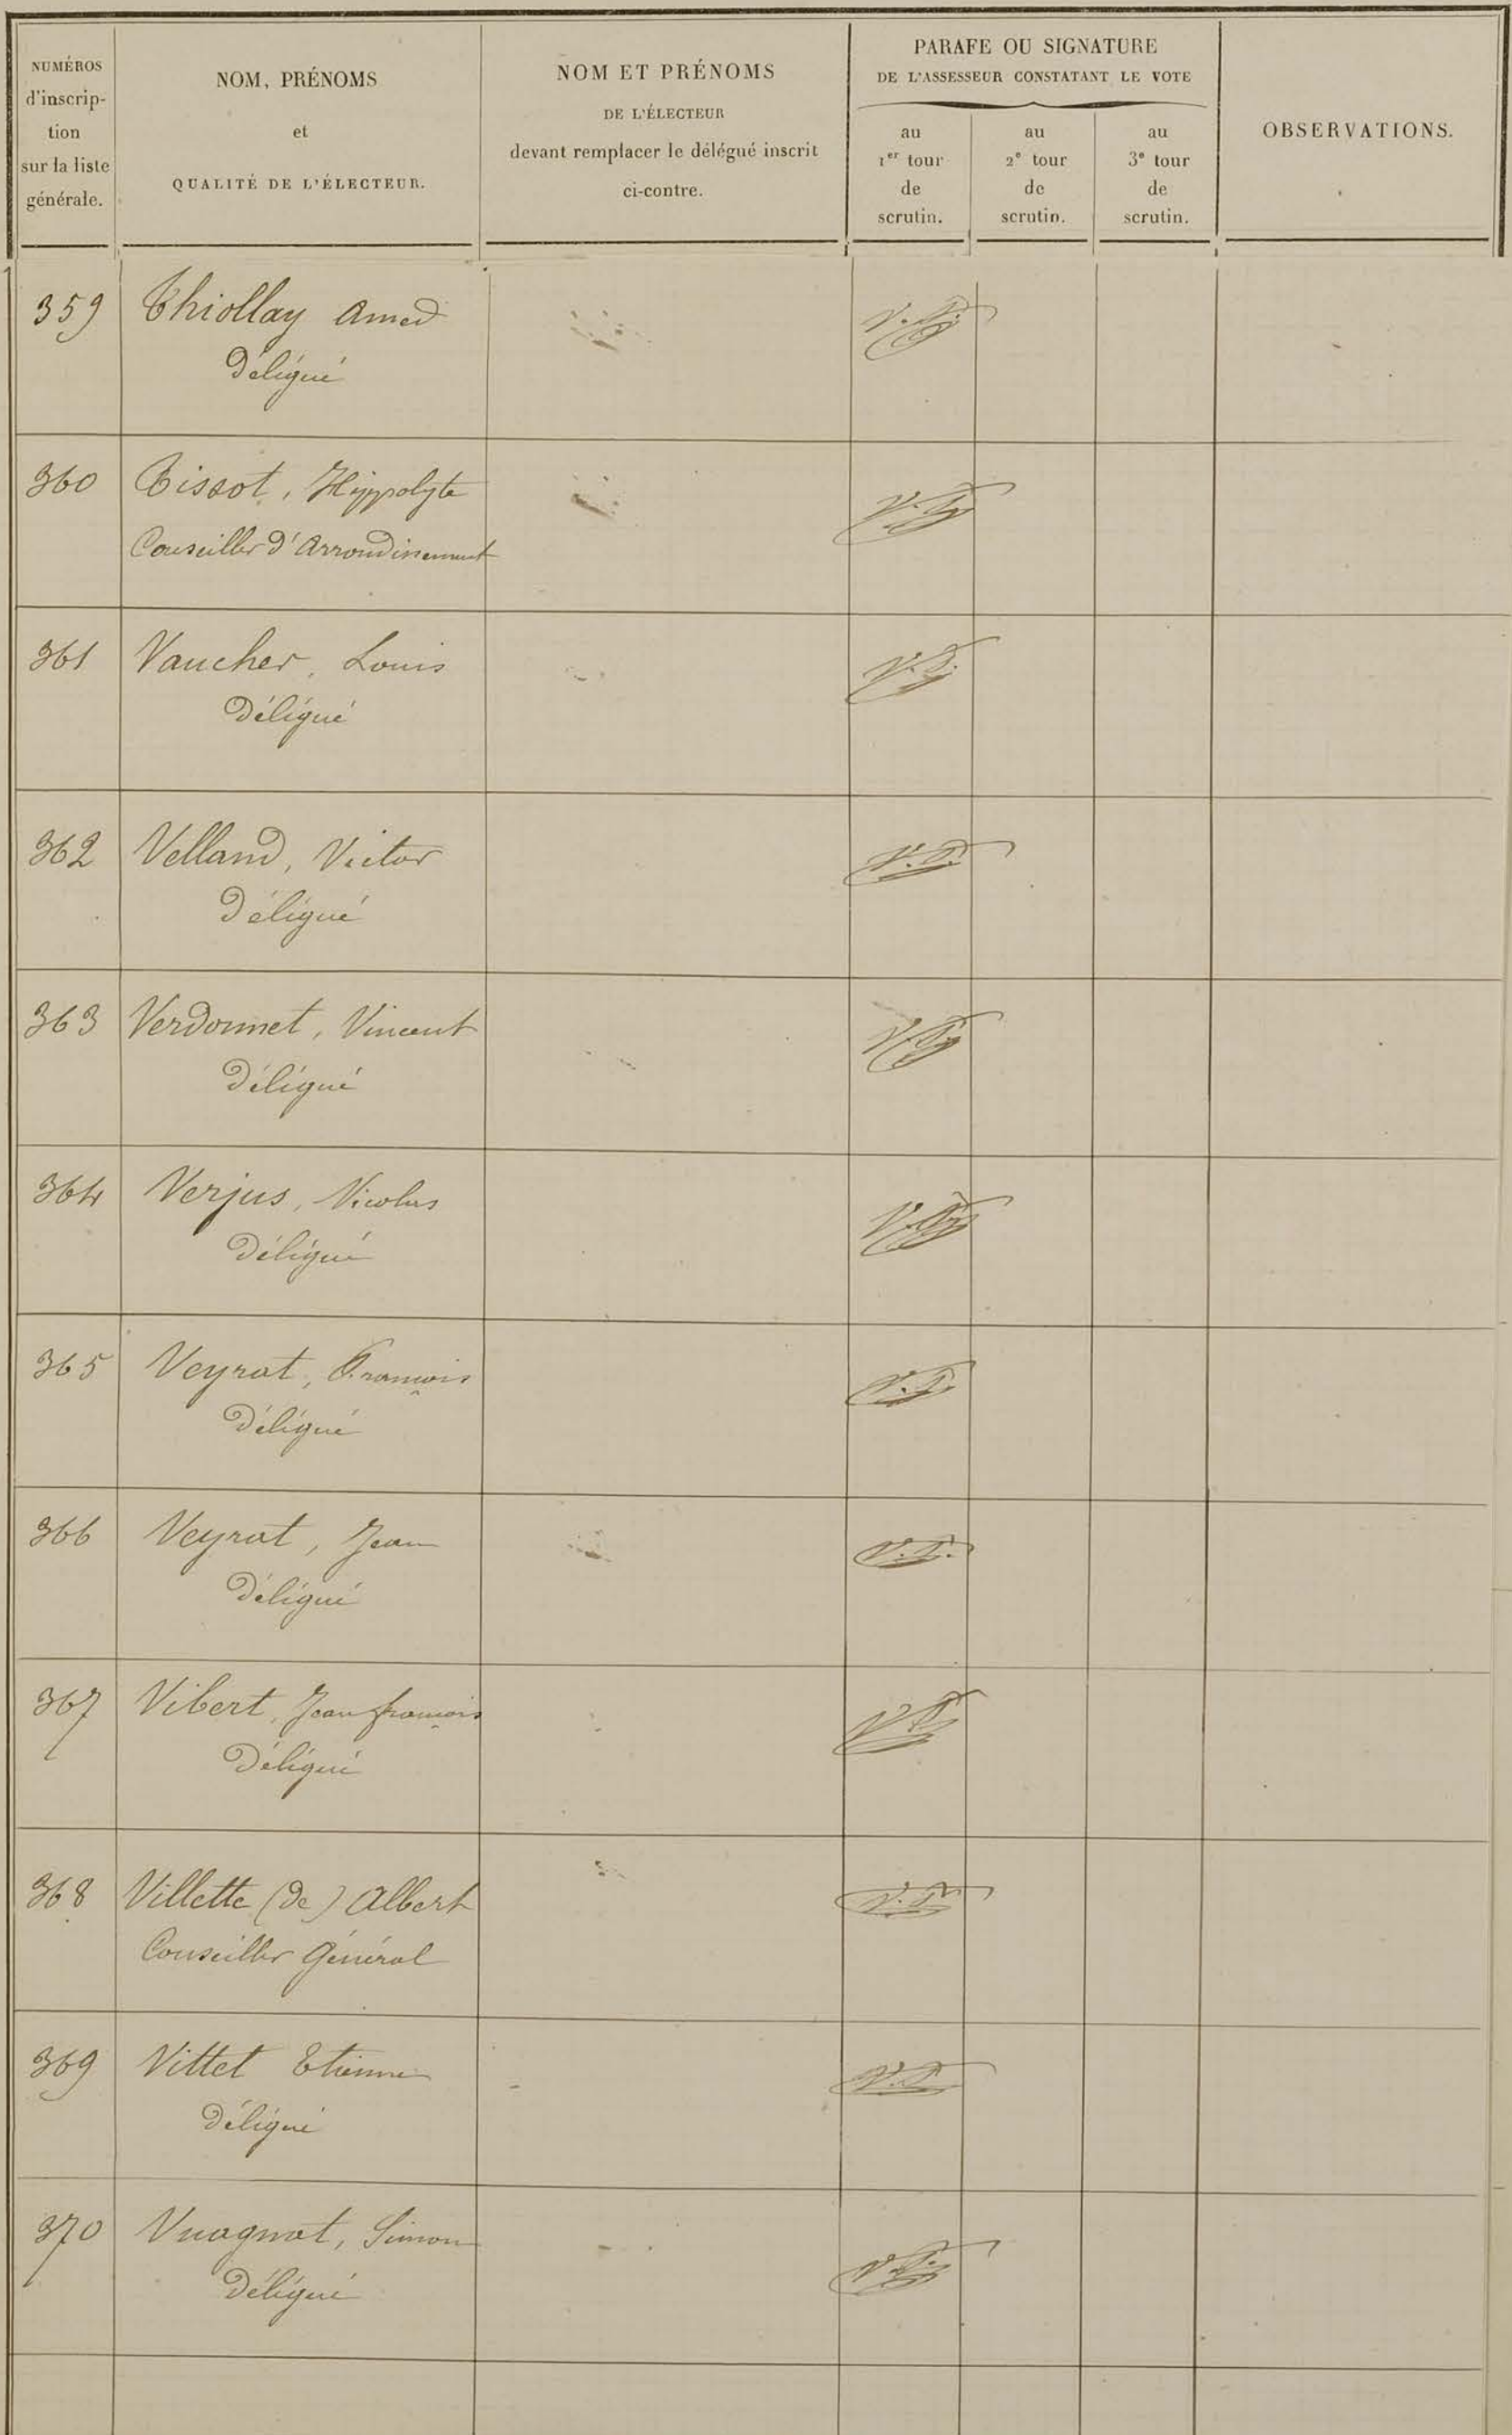 NUMÉROS
d'inscrip-
tion
sur la liste
générale.
NOM, PRÉNOMS
et
QUALITÉ DE L'ÉLECTEUR.
NOM ET PRÉNOMS
DE L'ÉLECTEUR
devant remplacer le délégué inscrit
ci-contre.
PARAFE OU SIGNATURE
DE L'ASSESSEUR CONSTATANT LE VOTE
au
1er tour
de
scrutin.
au
2e tour
de
scrutin.
au
3e tour
de
scrutin.
OBSERVATIONS.
359 Thiollay Amed V.T.
Délégué
360 Tissot, Hippolyte V.T.
Conseiller d'Arrondissement
361 Vaucher, Louis V.T.
Délégué
362 Velland, Victor V.T.
Délégué
363 Verdonnet, Vincent V.T.
Délégué
364 Verjus, Nicolas V.T.
Délégué
365 Veyrat, François V.T.
Délégué
366 Veyrat, Jean V.T.
Délégué
367 Vibert, Jean françois V.T.
Délégué
368 Villette (de) Albert V.T.
Conseiller Général
369 Vittet Etienne V.T.
Délégué
370 Vuagnat, Simon V.T.
Délégué